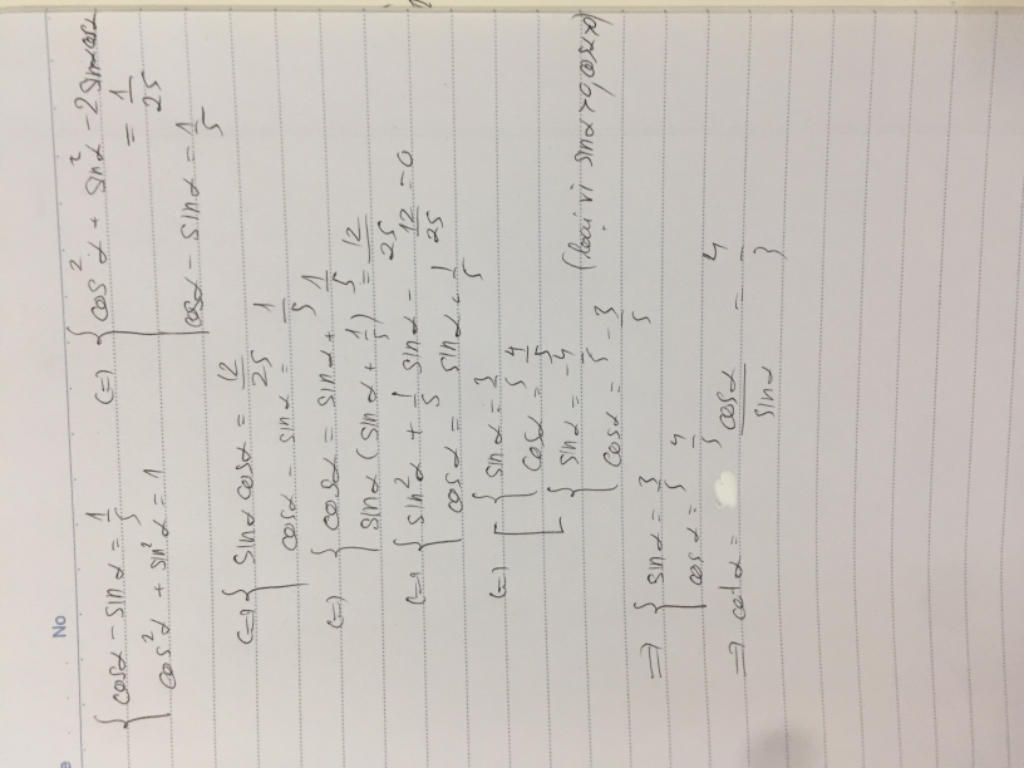 No
{ cosα - sinα = 1/5
cos²α + sin²α = 1
(=) { cos²α + sin²α - 2sinαcosα = 1/25
cosα - sinα = 1/5
(=) { sinα cosα = 12/25
cosα - sinα = 1/5
(=) { cosα = sinα + 1/5
sinα (sinα + 1/5) = 12/25
(=) { sin²α + 1/5 sinα - 12/25 = 0
cosα = sinα + 1/5
(=) [ { sinα = 3/5
cosα = 4/5
{ sinα = -4/5
cosα = -3/5 (loại vì sinα>0, cosα>0)
=> { sinα = 3/5
cosα = 4/5
=> cotα = cosα/sinα = 4/3